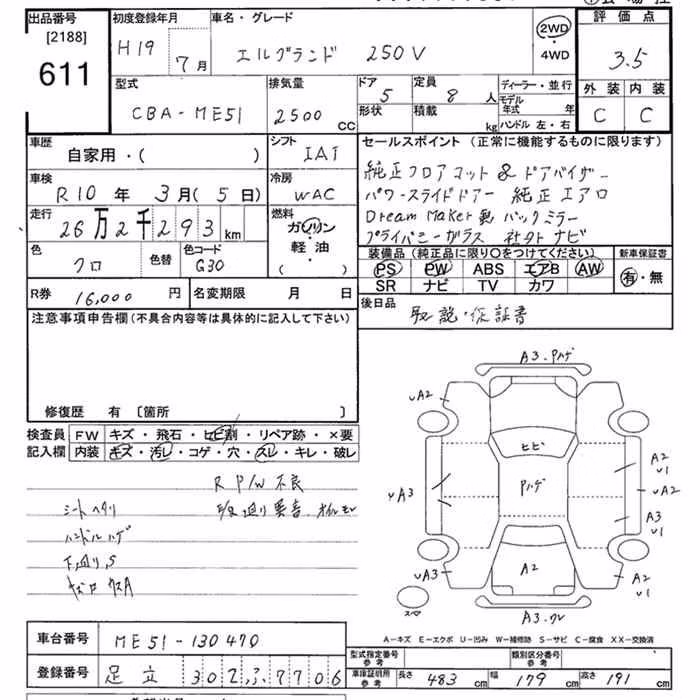 出品番号
[2188]
611
初度登録年月
H19
7月
車名・グレード
エルグランド 250V
2WD
・
4WD
評価点
3.5
外装 内装
C C
型式
CBA-ME51
排気量
2500
CC
ドア
5
定員
8 人
形状
積載
kg
ディーラー・並行
モデル年式 年
ハンドル 左・右
車歴
自家用・( )
シフト
IAT
車検
R10年 3月( 5日)
冷房
WAC
走行
26万2千293 km
燃料
ガソリン
・
軽・油
( )
色
クロ
色替
色コード
G30
R券
16,000 円
名変期限 月 日
セールスポイント (正常に機能するものに限ります)
純正フロアマット & ドアバイザー
パワースライドドアー 純正エアロ
Dream Maker製 バックミラー
プライバシーガラス 社外ナビ
装備品 (純正品に限り○をつけてください)
PS PW ABS エアB AW
SR ナビ TV カワ
新車保証書
有・無
後日品
取説・保証書
注意事項申告欄(不具合内容等は具体的に記入して下さい)
修復歴 有 〔箇所 〕
検査員記入欄
FW キズ・飛石・ヒビ割・リペア跡・×要
内装 キズ・汚レ・コゲ・穴・スレ・キレ・破レ
R P/W 不良
シートヘタリ
ハンドルハゲ
下廻りS
A3.Pハゲ
UA2
ヒビ
Pハゲ
A2
U1
UA3
UA2
A3
U1
UA3
A2
A2
U1
スペア
A-キズ E-エクボ U-凹み W-補修跡 S-サビ C-腐食 XX-交換済
車台番号
ME51-130470
登録番号
足立 302ふ7706
型式指定番号
参考
類別区分番号
参考
車庫証明用
参考
長さ 483 cm
幅 179 cm
高さ 191 cm